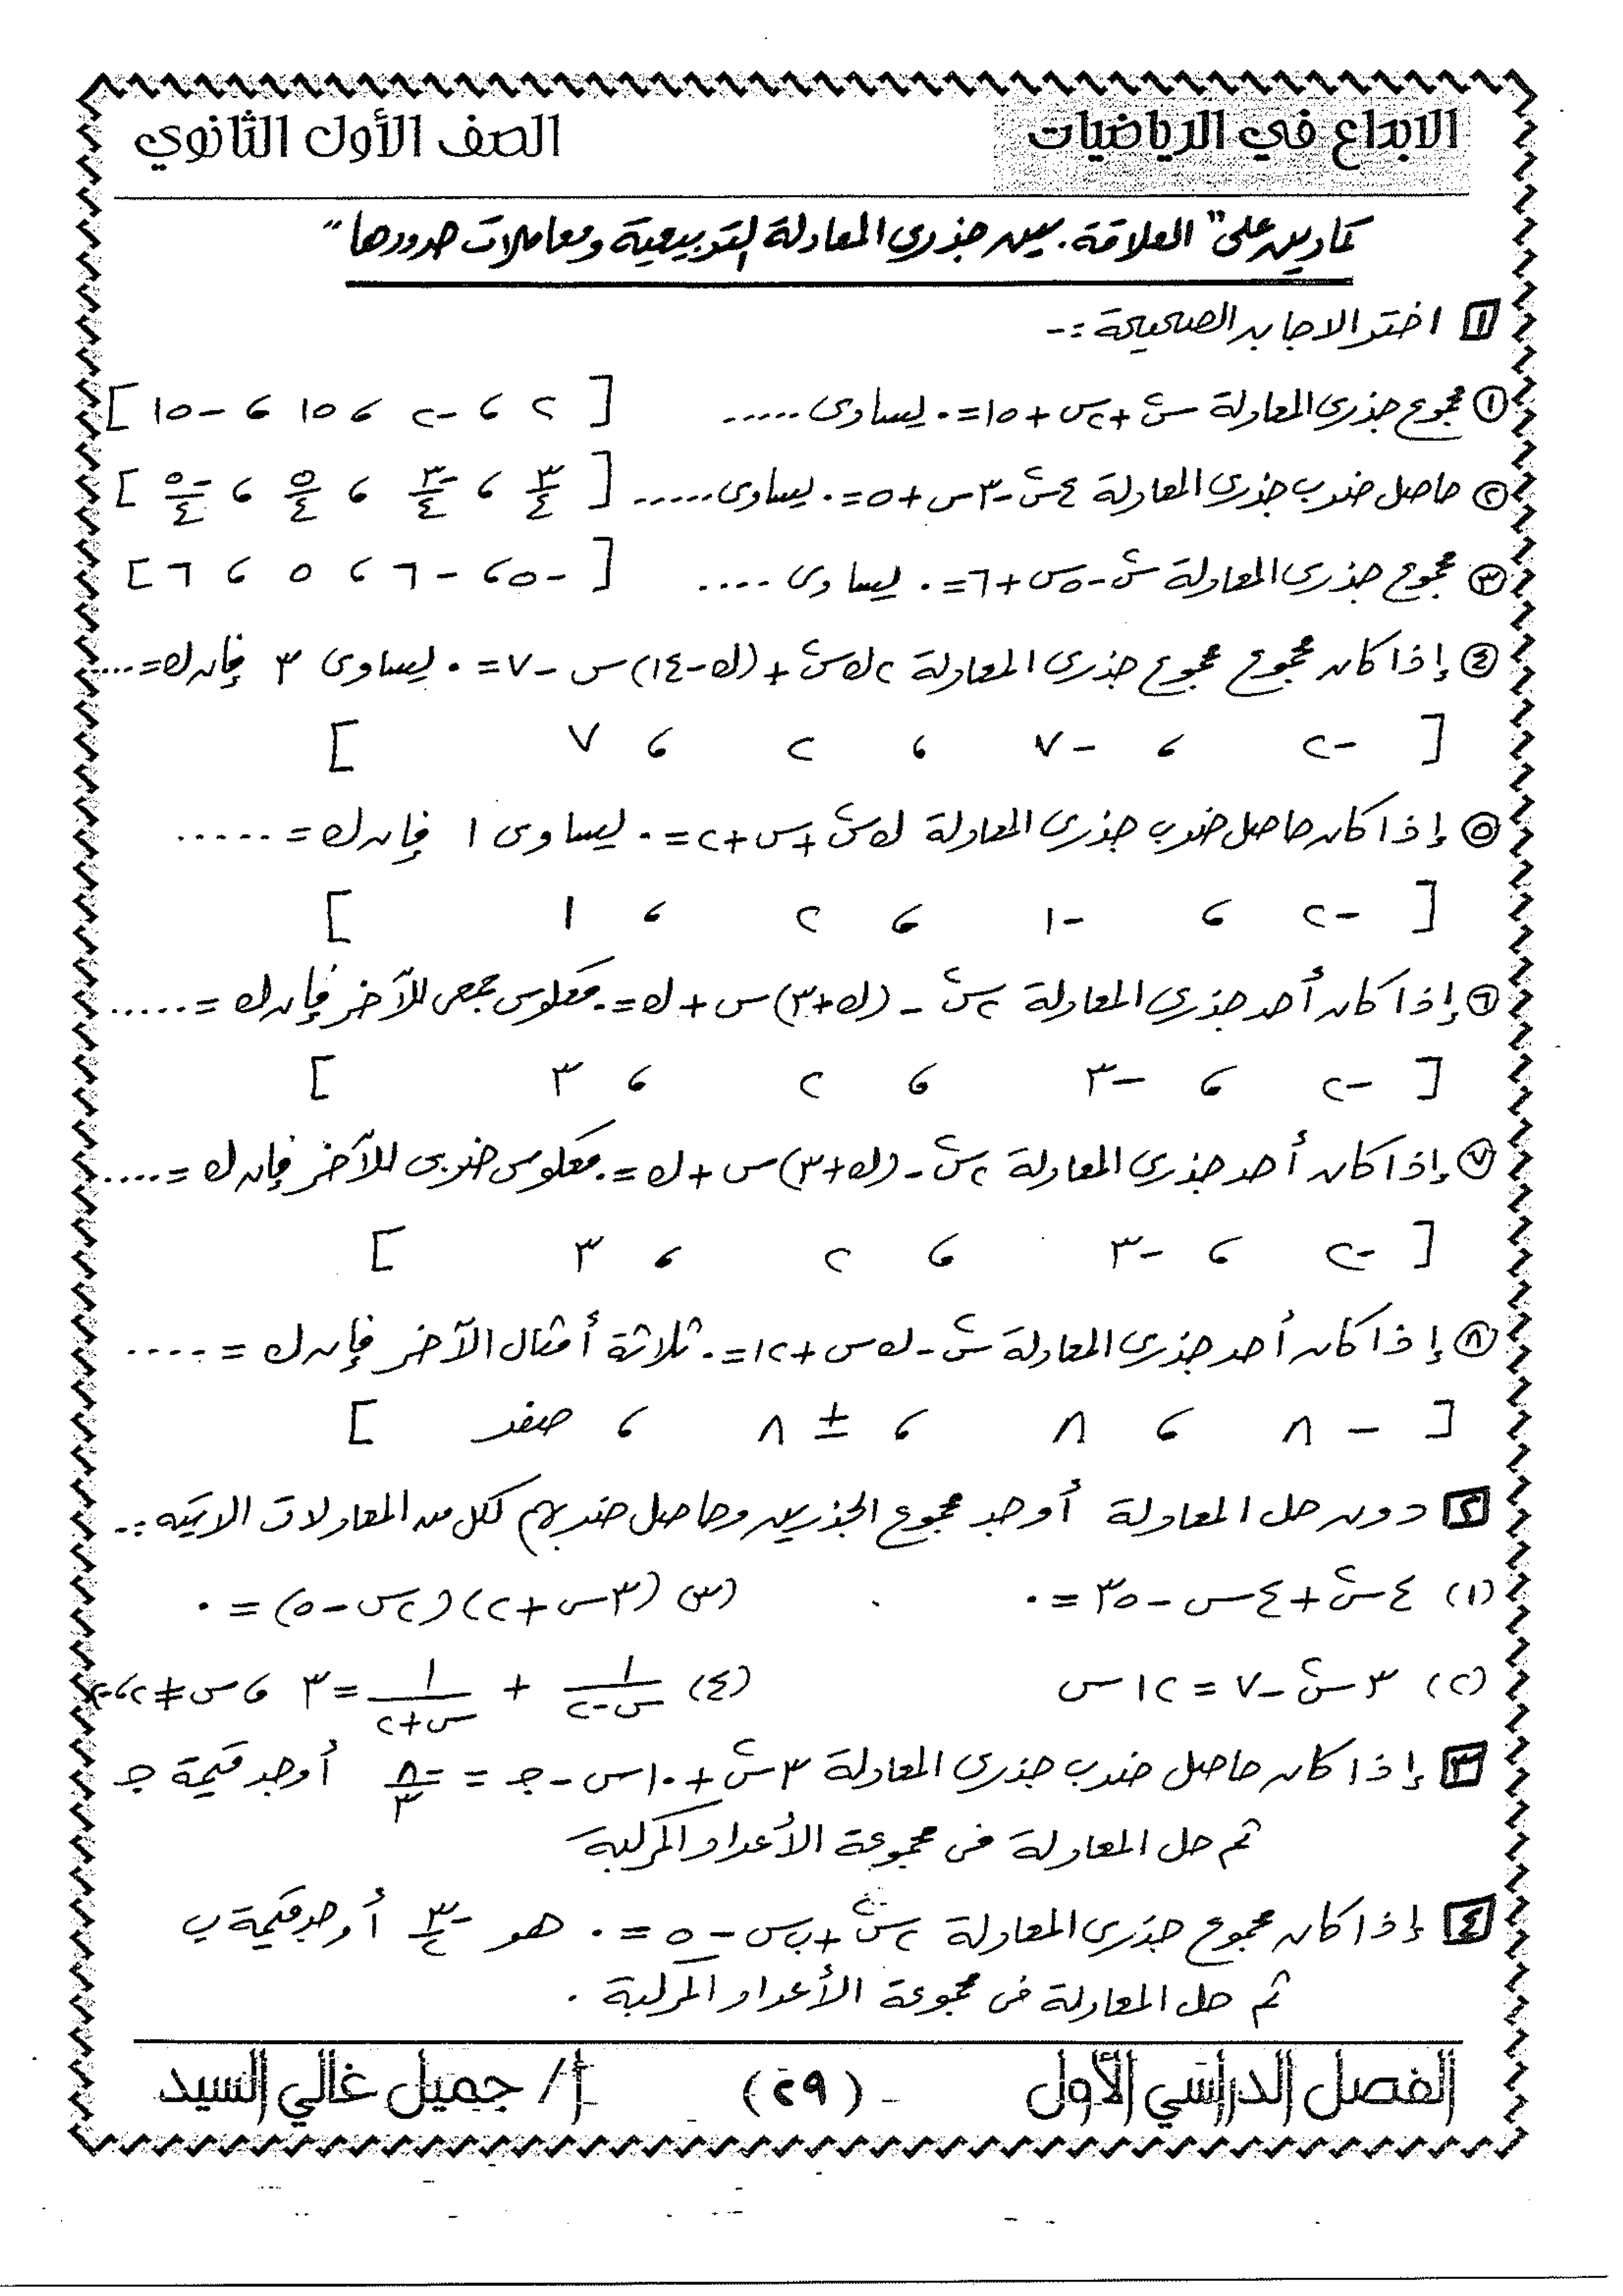 الابداع في الرياضيات
الصف الأول الثانوي
تمارين على "العلاقة بين جذرى المعادلة التربيعية ومعاملات حدودها"
١ اختر الاجابه الصحيحة :-
① مجموع جذرى المعادلة س٢ + ٢س + ١٥ = ٠ يساوى ..... [ ٢ ، -٢ ، ١٥ ، -١٥ ]
② حاصل ضرب جذرى المعادلة ٤س٢ - ٣س + ٥ = ٠ يساوى ..... [ ٣/٤ ، -٣/٤ ، ٥/٤ ، -٥/٤ ]
③ مجموع جذرى المعادلة س٢ - ٥س + ٦ = ٠ يساوى .... [ -٥ ، -٦ ، ٥ ، ٦ ]
④ إذا كان مجموع مجموع جذرى المعادلة ٢ك س٢ + (ك - ١٤) س - ٧ = ٠ يساوى ٣ فإن ك = ....
[ -٢ ، -٧ ، ٢ ، ٧ ]
⑤ إذا كان حاصل ضرب جذرى المعادلة ك س٢ + س + ٢ = ٠ يساوى ١ فإن ك = .....
[ -٢ ، -١ ، ٢ ، ١ ]
⑥ إذا كان أحد جذرى المعادلة ٢س٢ - (ك + ٣) س + ك = ٠ معكوس جمعى للآخر فإن ك = .....
[ -٢ ، -٣ ، ٢ ، ٣ ]
⑦ إذا كان أحد جذرى المعادلة ٢س٢ - (ك + ٣) س + ك = ٠ معكوس ضربى للآخر فإن ك = ....
[ -٢ ، -٣ ، ٢ ، ٣ ]
⑧ إذا كان أحد جذرى المعادلة س٢ - ك س + ١٢ = ٠ ثلاثة أمثال الآخر فإن ك = ....
[ -٨ ، ٨ ، ± ٨ ، صفر ]
٢ دون حل المعادلة أوجد مجموع الجذرين وحاصل ضربهم لكل من المعادلات الاتيه :-
(١) ٤س٢ + ٤س - ٣٥ = ٠
(٣) (٣س + ٢)(٢س - ٥) = ٠
(٢) ٣س٢ - ٧ = ١٢س
(٤) ١/(س - ٢) + ١/(س + ٢) = ٣ ، س ≠ ٢ ، -٢
٣ إذا كان حاصل ضرب جذرى المعادلة ٣س٢ + ١٠س - جـ = -٨/٣ أوجد قيمة جـ
ثم حل المعادلة فى مجموعة الأعداد المركبة
٤ إذا كان مجموع جذرى المعادلة ٢س٢ + ب س - ٥ = ٠ هو -٣/٢ أوجد قيمة ب
ثم حل المعادلة فى مجموعة الأعداد المركبة .
الفصل الدراسي الأول
(٢٩)
أ/ جميل غالي السيد